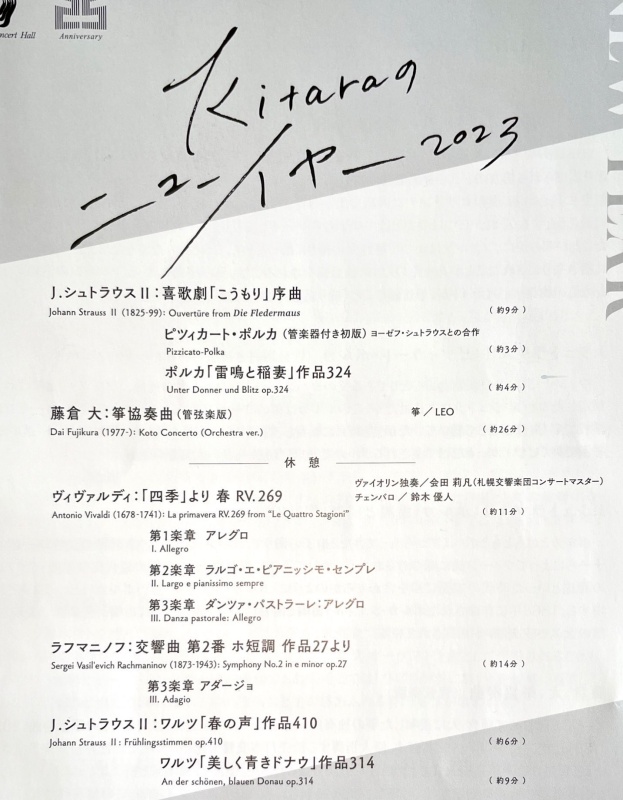 ncert Hall
Anniversary
NEW YEAR
Kitaraの
ニューイヤー 2023
J.シュトラウスII：喜歌劇「こうもり」序曲
Johann Strauss II (1825-99): Ouvertüre from Die Fledermaus （約9分）
ピツィカート・ポルカ（管楽器付き初版）ヨーゼフ・シュトラウスとの合作
Pizzicato-Polka （約3分）
ポルカ「雷鳴と稲妻」作品324
Unter Donner und Blitz op.324 （約4分）
藤倉 大：箏協奏曲（管弦楽版） 箏／LEO
Dai Fujikura (1977-): Koto Concerto (Orchestra ver.) （約26分）
休 憩
ヴァイオリン独奏／会田 莉凡（札幌交響楽団コンサートマスター）
ヴィヴァルディ：「四季」より 春 RV.269 チェンバロ／鈴木 優人
Antonio Vivaldi (1678-1741): La primavera RV.269 from "Le Quattro Stagioni" （約11分）
第1楽章 アレグロ
I. Allegro
第2楽章 ラルゴ・エ・ピアニッシモ・センプレ
II. Largo e pianissimo sempre
第3楽章 ダンツァ・パストラーレ：アレグロ
III. Danza pastorale: Allegro
ラフマニノフ：交響曲 第2番 ホ短調 作品27より
Sergei Vasil'evich Rachmaninov (1873-1943): Symphony No.2 in e minor op.27 （約14分）
第3楽章 アダージョ
III. Adagio
J.シュトラウスII：ワルツ「春の声」作品410
Johann Strauss II : Frühlingsstimmen op.410 （約6分）
ワルツ「美しく青きドナウ」作品314
An der schönen, blauen Donau op.314 （約9分）